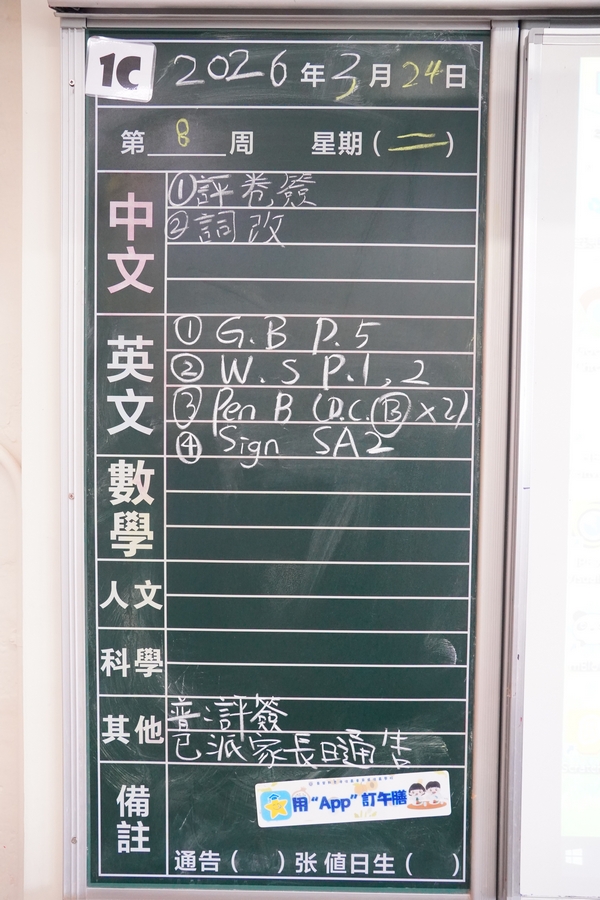 1C 2026年3月24日
第8周 星期(二)
中文
①評卷簽
②詞改
英文
① G.B P.5
② W.S P.1, 2
③ Pen B (D.C. B ×2)
④ Sign SA2
數學
人文
科學
其他
普:評簽
已派家長日通告
備註
用“App”訂午膳
通告( )张 值日生( )